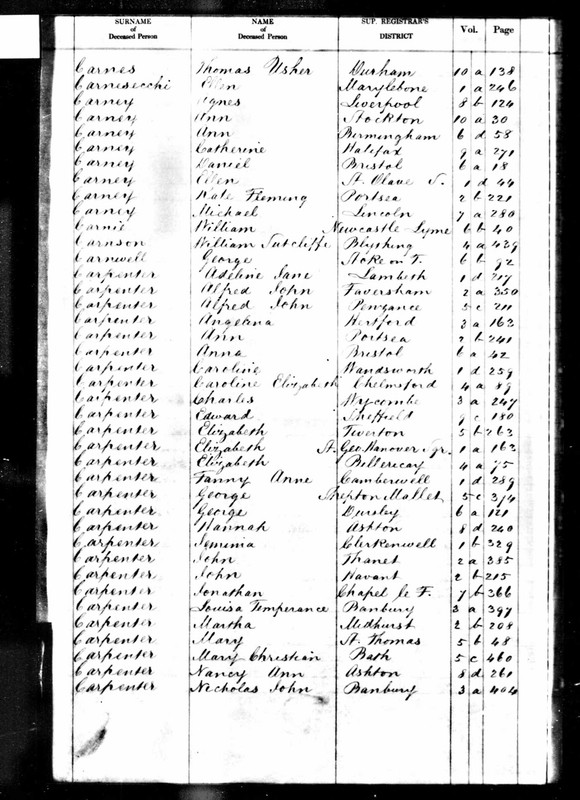 SURNAME of Deceased Person NAME of Deceased Person SUP. REGISTRAR'S DISTRICT Vol. Page
Carnes Thomas Usher Durham 10 a 138
Carnesecchi Ellen Marylebone 1 a 246
Carney Agnes Liverpool 8 b 124
Carney Ann Stockton 10 a 30
Carney Ann Birmingham 6 d 58
Carney Catherine Halifax 9 a 271
Carney Daniel Bristol 6 a 18
Carney Ellen St. Olave S. 1 d 44
Carney Kate Fleming Portsea 2 b 221
Carney Michael Lincoln 7 a 280
Carnie William Newcastle Lyme 6 b 40
Carnson William Sutcliffe Blything 4 a 429
Carnwell George Stoke on T. 6 b 92
Carpenter Adeline Jane Lambeth 1 d 217
Carpenter Alfred John Faversham 2 a 350
Carpenter Alfred John Penzance 5 c 211
Carpenter Angelina Hertford 3 a 163
Carpenter Ann Portsea 2 b 241
Carpenter Anna Bristol 6 a 42
Carpenter Caroline Wandsworth 1 d 259
Carpenter Caroline Elizabeth Chelmsford 4 a 89
Carpenter Charles Wycombe 3 a 247
Carpenter Edward Sheffield 9 c 180
Carpenter Elizabeth Tiverton 5 b 263
Carpenter Elizabeth St. Geo. Hanover Sqr. 1 a 163
Carpenter Elizabeth Billericay 4 a 75
Carpenter Fanny Anne Camberwell 1 d 289
Carpenter George Shepton Mallet 5 c 314
Carpenter George Dursley 6 a 121
Carpenter Hannah Ashton 8 d 240
Carpenter Jemimia Clerkenwell 1 b 329
Carpenter John Thanet 2 a 385
Carpenter John Havant 2 b 215
Carpenter Jonathan Chapel le F. 7 b 366
Carpenter Louisa Temperance Banbury 3 a 397
Carpenter Martha Midhurst 2 b 208
Carpenter Mary St. Thomas 5 b 48
Carpenter Mary Christian Bath 5 c 460
Carpenter Nancy Ann Ashton 8 d 261
Carpenter Nicholas John Banbury 3 a 404